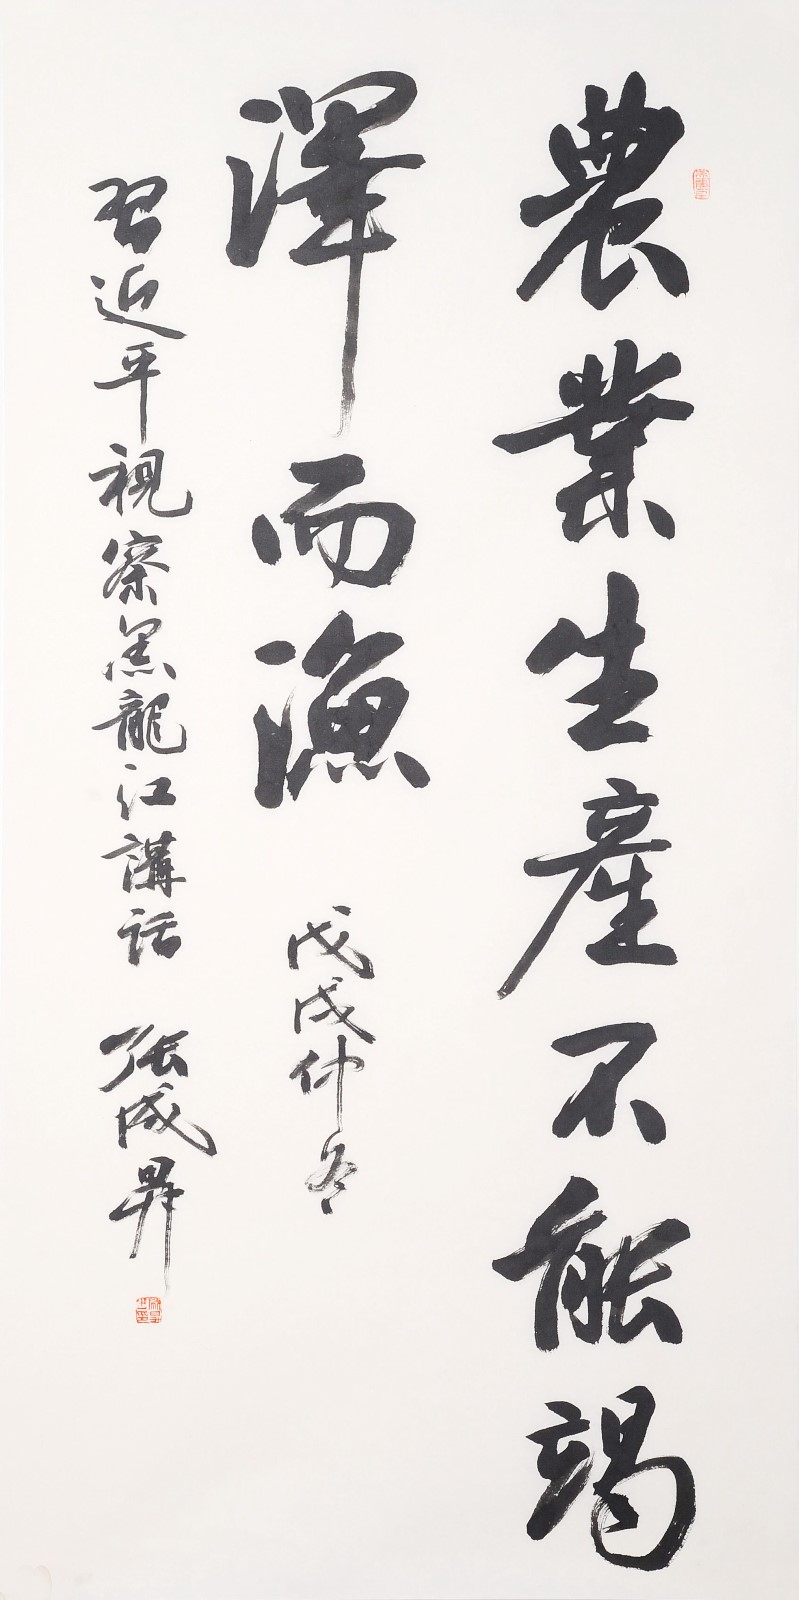 農業生産不能竭
澤而漁
戊戌仲冬
習近平視察黑龍江講話 張成昇